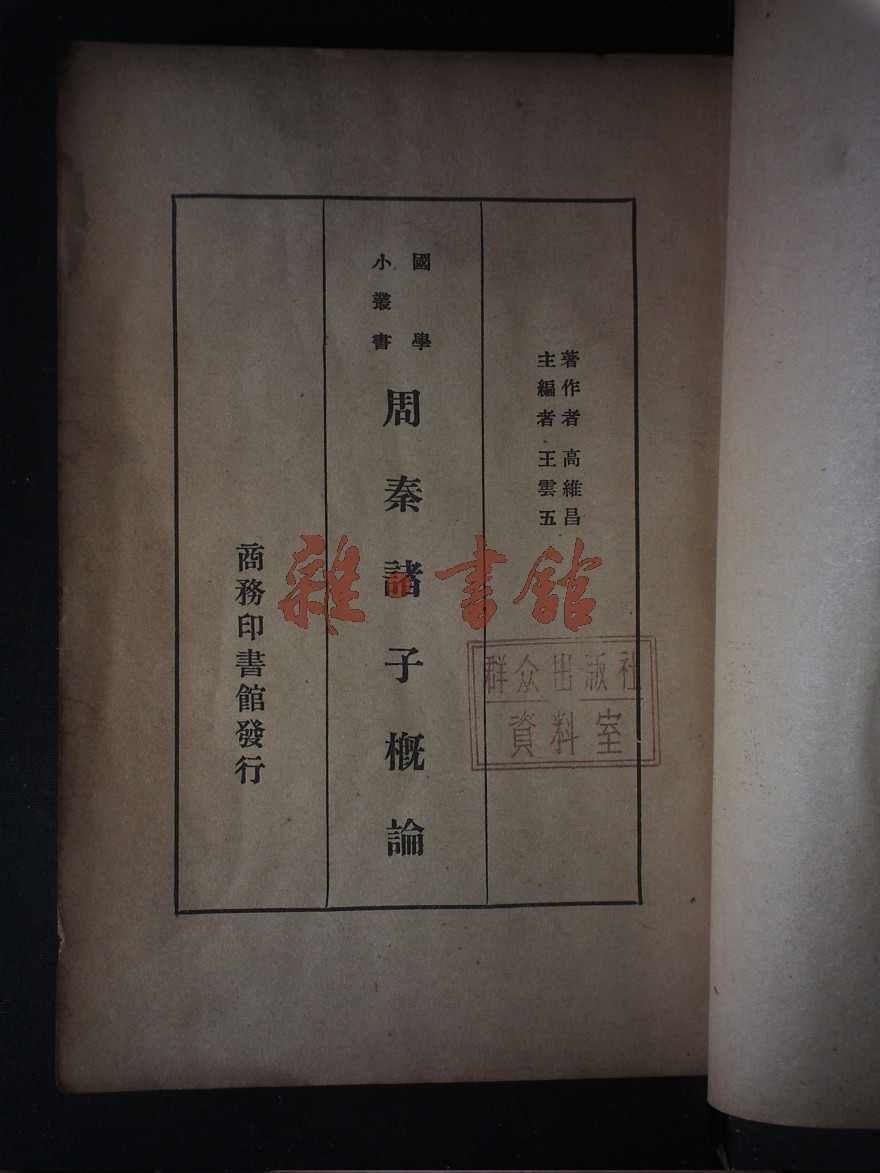 著作者 高維昌
主編者 王雲五
國學
小叢書
周秦諸子概論
商務印書館發行
雜·書館
群众出版社
資料室